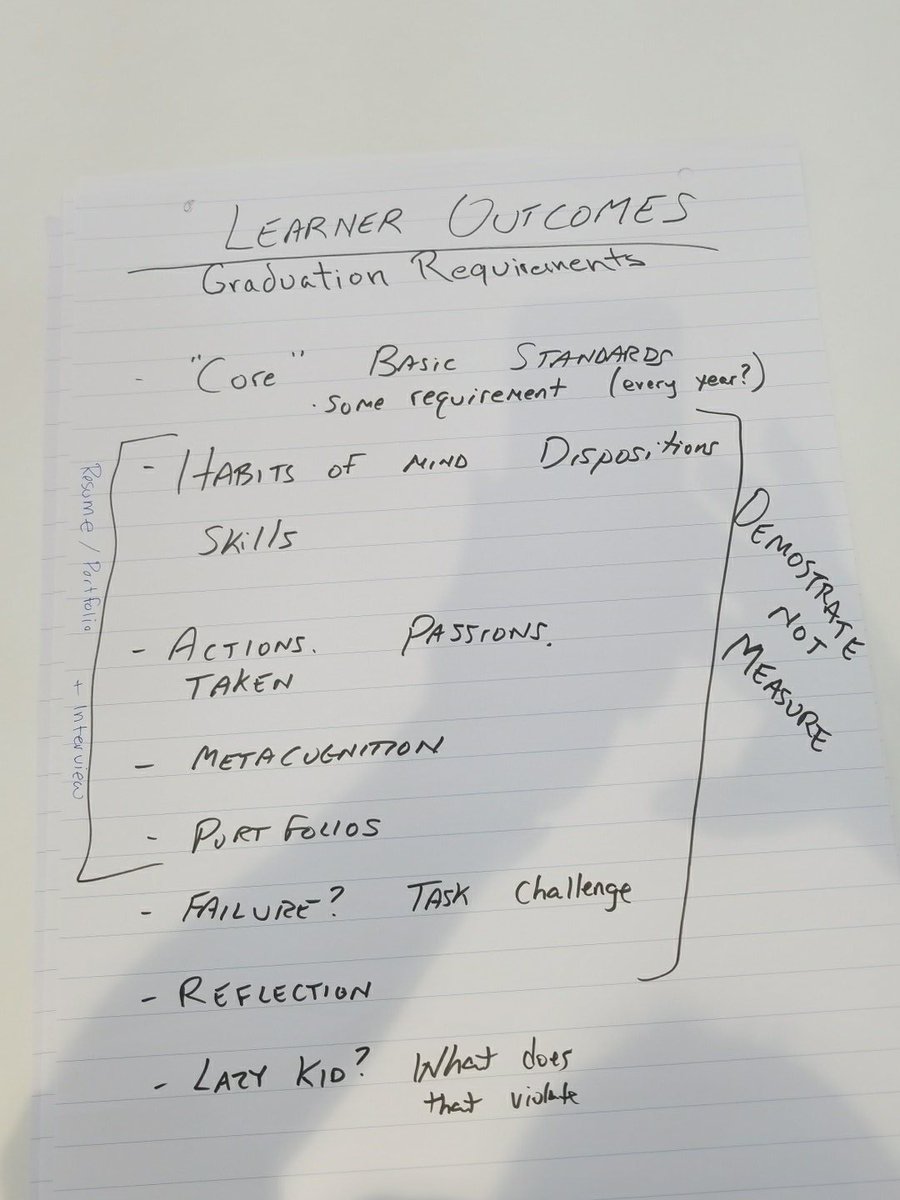 LEARNER OUTCOMES
Graduation Requirements
- "Core" BASIC STANDARDS
. Some requirement (every year?)
- HABITS OF MIND DISPOSITIONS
Skills
- ACTIONS. PASSIONS.
TAKEN
- METACOGNITION
- PORTFOLIOS
- FAILURE? TASK Challenge
- REFLECTION
- LAZY KID? What does
that violate
Resume / Portfolio + Interview
DEMOSTRATE
NOT
MEASURE